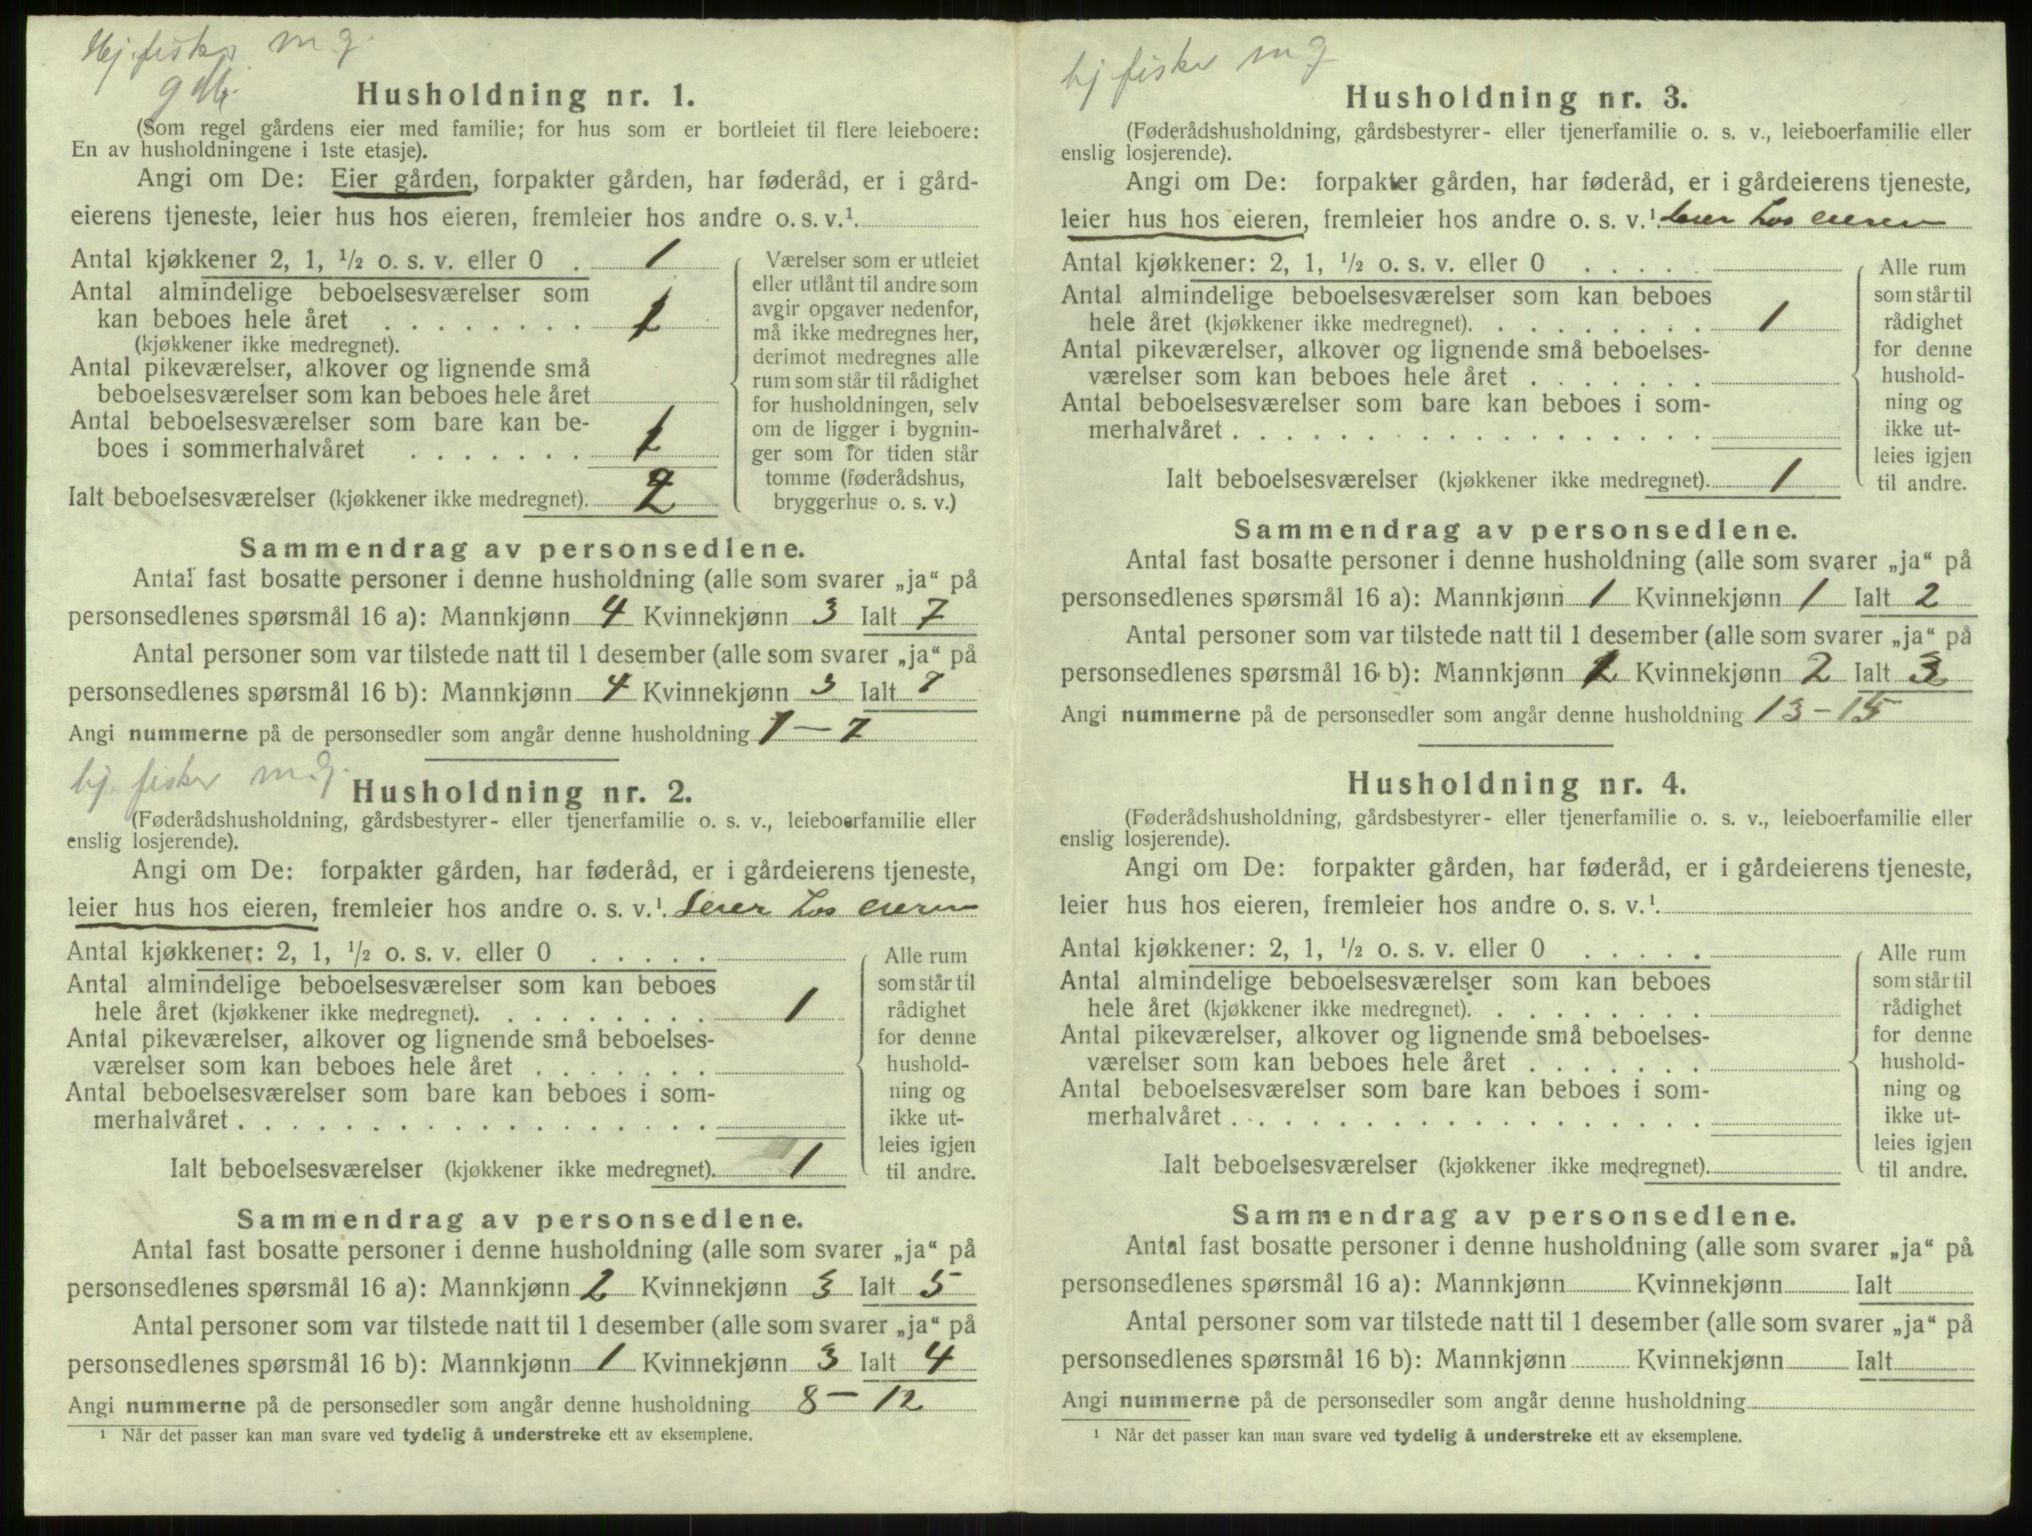 Hj. fisker m g.
Husholdning nr. 1.
(Som regel gårdens eier med familie; for hus som er bortleiet til flere leieboere:
En av husholdningene i 1ste etasje).
Angi om De: Eier gården, forpakter gården, har føderåd, er i gård-
eierens tjeneste, leier hus hos eieren, fremleier hos andre o. s. v.¹.
Antal kjøkkener 2, 1, ½ o. s. v. eller 0 . 1
Antal almindelige beboelsesværelser som
kan beboes hele året . . . . . . . . 1
(kjøkkener ikke medregnet).
Antal pikeværelser, alkover og lignende små
beboelsesværelser som kan beboes hele året
Antal beboelsesværelser som bare kan be-
boes i sommerhalvåret . . . . . . . 1
Ialt beboelsesværelser (kjøkkener ikke medregnet). 2
Værelser som er utleiet
eller utlånt til andre som
avgir opgaver nedenfor,
må ikke medregnes her,
derimot medregnes alle
rum som står til rådighet
for husholdningen, selv
om de ligger i bygnin-
ger som for tiden står
tomme (føderådshus,
bryggerhus o. s. v.)
Sammendrag av personsedlene.
Antal fast bosatte personer i denne husholdning (alle som svarer „ja“ på
personsedlenes spørsmål 16 a): Mannkjønn 4 Kvinnekjønn 3 Ialt 7
Antal personer som var tilstede natt til 1 desember (alle som svarer „ja“ på
personsedlenes spørsmål 16 b): Mannkjønn 4 Kvinnekjønn 3 Ialt 7
Angi nummerne på de personsedler som angår denne husholdning 1 – 7
hj. fisker m.g.
Husholdning nr. 2.
(Føderådshusholdning, gårdsbestyrer- eller tjenerfamilie o. s. v., leieboerfamilie eller
enslig losjerende).
Angi om De: forpakter gården, har føderåd, er i gårdeierens tjeneste,
leier hus hos eieren, fremleier hos andre o. s. v.¹. Leier hos eieren
Antal kjøkkener: 2, 1, ½ o. s. v. eller 0 . . . . .
Antal almindelige beboelsesværelser som kan beboes
hele året (kjøkkener ikke medregnet). . . . . . . . . 1
Antal pikeværelser, alkover og lignende små beboelses-
værelser som kan beboes hele året . . . . . . .
Antal beboelsesværelser som bare kan beboes i som-
merhalvåret . . . . . . . . . . . . . . . . . .
Ialt beboelsesværelser (kjøkkener ikke medregnet). 1
Alle rum
som står til
rådighet
for denne
hushold-
ning og
ikke ut-
leies igjen
til andre.
Sammendrag av personsedlene.
Antal fast bosatte personer i denne husholdning (alle som svarer „ja“ på
personsedlenes spørsmål 16 a): Mannkjønn 2 Kvinnekjønn 3 Ialt 5
Antal personer som var tilstede natt til 1 desember (alle som svarer „ja“ på
personsedlenes spørsmål 16 b): Mannkjønn 1 Kvinnekjønn 3 Ialt 4
Angi nummerne på de personsedler som angår denne husholdning 8 – 12
¹ Når det passer kan man svare ved tydelig å understreke ett av eksemplene.
hj fisker m g
Husholdning nr. 3.
(Føderådshusholdning, gårdsbestyrer- eller tjenerfamilie o. s. v., leieboerfamilie eller
enslig losjerende).
Angi om De: forpakter gården, har føderåd, er i gårdeierens tjeneste,
leier hus hos eieren, fremleier hos andre o. s. v.¹. Leier hos eieren
Antal kjøkkener: 2, 1, ½ o. s. v. eller 0 . . . . .
Antal almindelige beboelsesværelser som kan beboes
hele året (kjøkkener ikke medregnet). . . . . . . . . 1
Antal pikeværelser, alkover og lignende små beboelses-
værelser som kan beboes hele året . . . . . . .
Antal beboelsesværelser som bare kan beboes i som-
merhalvåret . . . . . . . . . . . . . . . . . .
Ialt beboelsesværelser (kjøkkener ikke medregnet). 1
Alle rum
som står til
rådighet
for denne
hushold-
ning og
ikke ut-
leies igjen
til andre.
Sammendrag av personsedlene.
Antal fast bosatte personer i denne husholdning (alle som svarer „ja“ på
personsedlenes spørsmål 16 a): Mannkjønn 1 Kvinnekjønn 1 Ialt 2
Antal personer som var tilstede natt til 1 desember (alle som svarer „ja“ på
personsedlenes spørsmål 16 b): Mannkjønn 1 Kvinnekjønn 2 Ialt 3
Angi nummerne på de personsedler som angår denne husholdning 13 – 15
Husholdning nr. 4.
(Føderådshusholdning, gårdsbestyrer- eller tjenerfamilie o. s. v., leieboerfamilie eller
enslig losjerende).
Angi om De: forpakter gården, har føderåd, er i gårdeierens tjeneste,
leier hus hos eieren, fremleier hos andre o. s. v.¹.
Antal kjøkkener: 2, 1, ½ o. s. v. eller 0 . . . . .
Antal almindelige beboelsesværelser som kan beboes
hele året (kjøkkener ikke medregnet). . . . . . . . .
Antal pikeværelser, alkover og lignende små beboelses-
værelser som kan beboes hele året . . . . . . .
Antal beboelsesværelser som bare kan beboes i som-
merhalvåret . . . . . . . . . . . . . . . . . .
Ialt beboelsesværelser (kjøkkener ikke medregnet).
Alle rum
som står til
rådighet
for denne
hushold-
ning og
ikke ut-
leies igjen
til andre.
Sammendrag av personsedlene.
Antal fast bosatte personer i denne husholdning (alle som svarer „ja“ på
personsedlenes spørsmål 16 a): Mannkjønn Kvinnekjønn Ialt
Antal personer som var tilstede natt til 1 desember (alle som svarer „ja“ på
personsedlenes spørsmål 16 b): Mannkjønn Kvinnekjønn Ialt
Angi nummerne på de personsedler som angår denne husholdning
¹ Når det passer kan man svare ved tydelig å understreke ett av eksemplene.